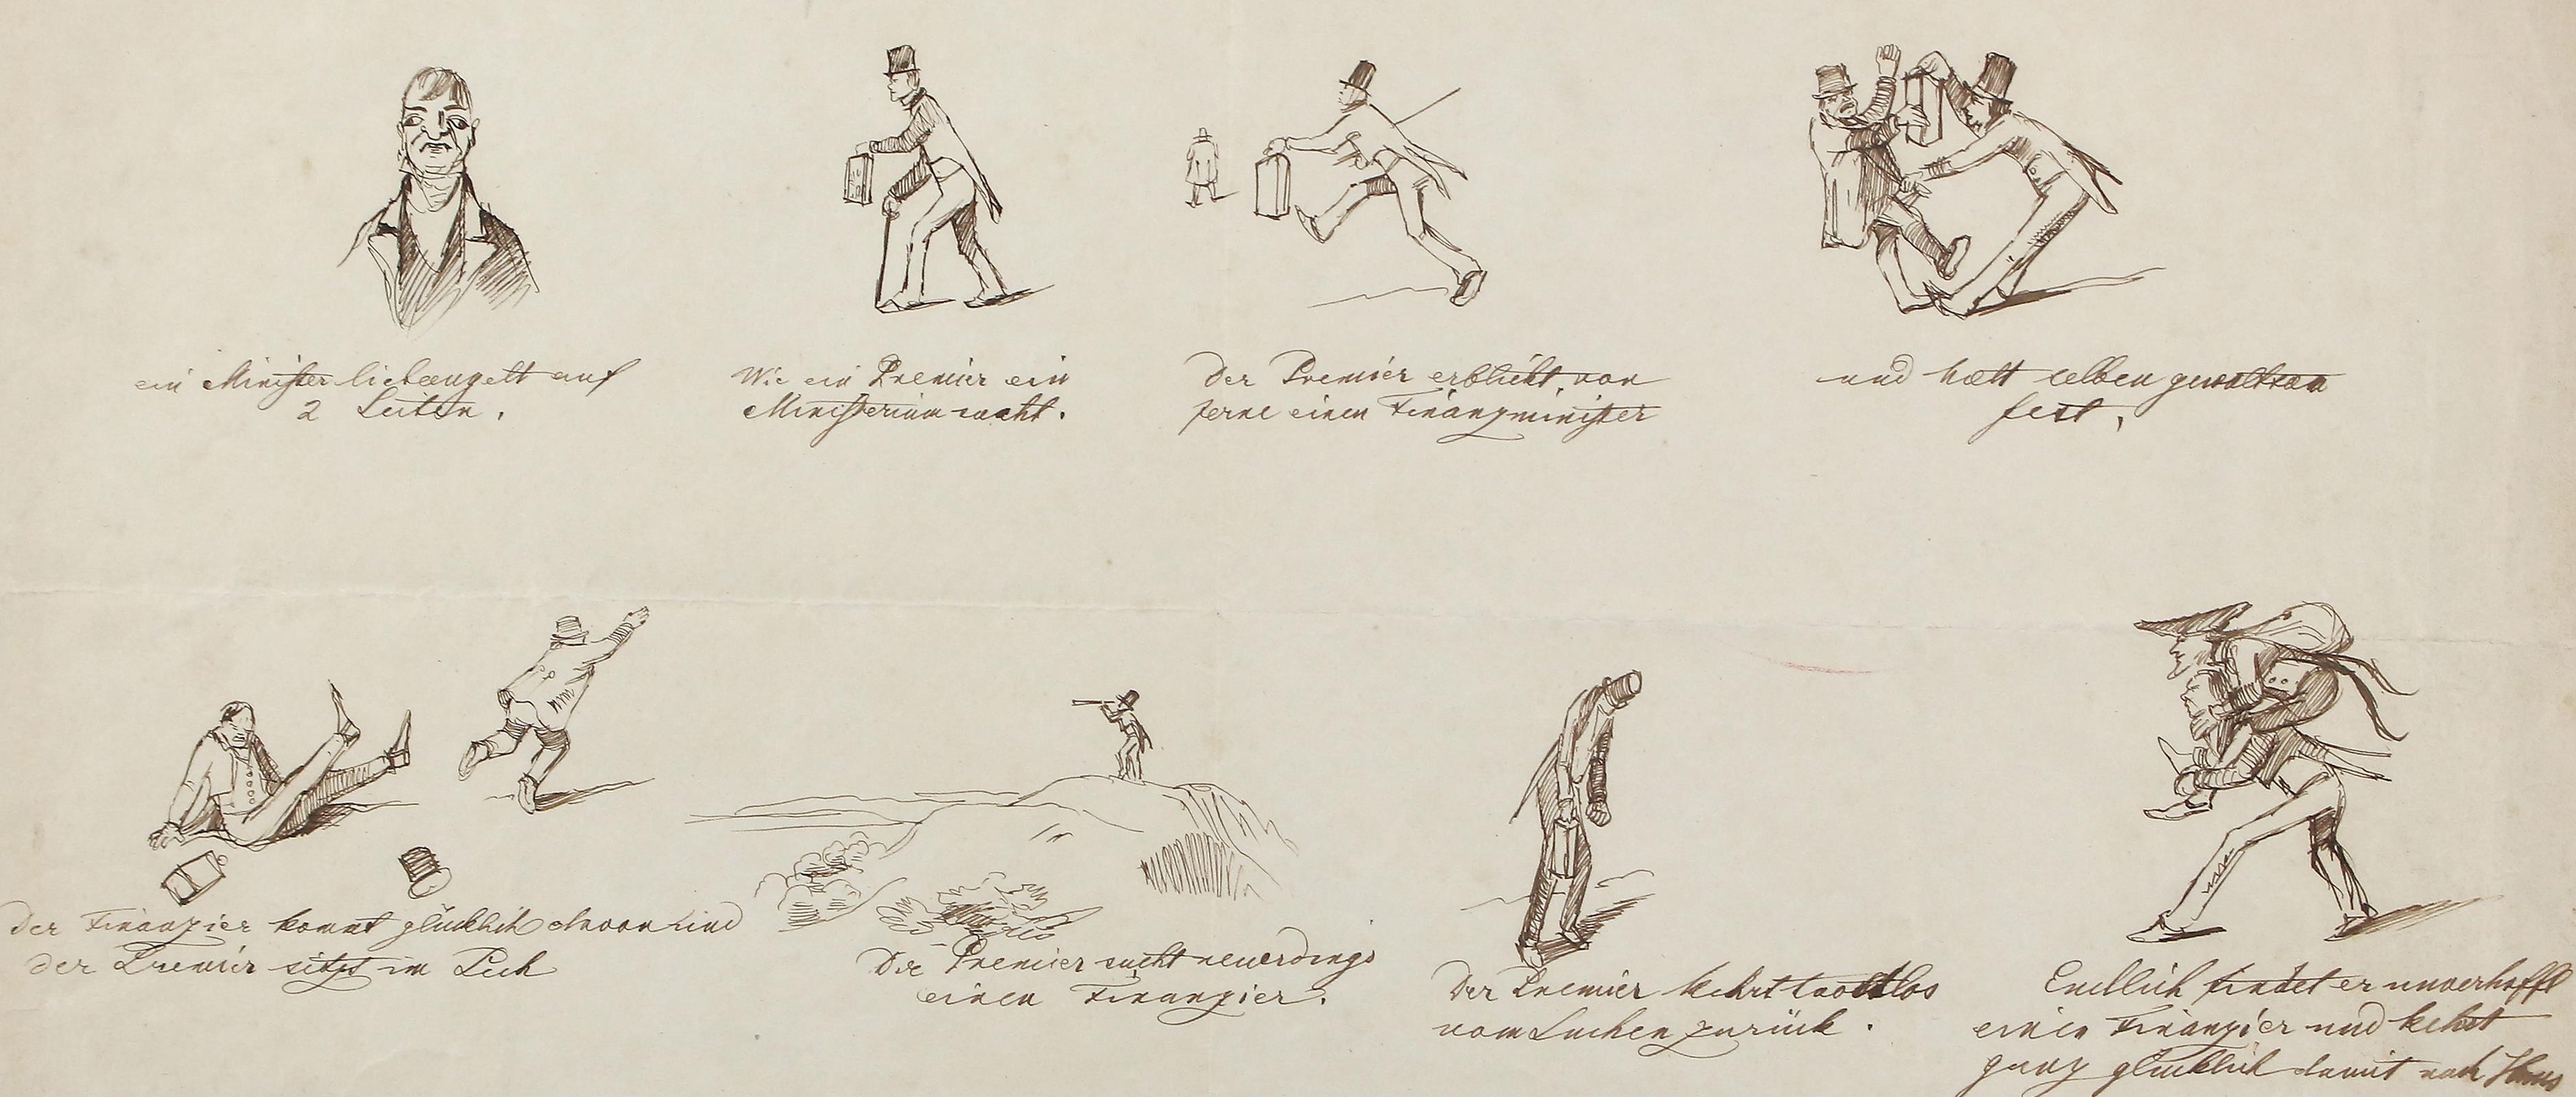 ein Minister liebeugelt auf
2 Seiten.
Wie ein Premier ein
Ministerium sucht.
Der Premier erblickt von
ferne einen Finanzminister
und hält selben gewaltsam
fest.
Der Finanzier kommt glücklich davon und
der Premier sitzt im Pech
Der Premier sucht neuerdings
einen Finanzier.
Der Premier kehrt trostlos
vom Suchen zurück.
Endlich findet er unverhofft
einen Finanzier und kehrt
ganz glücklich damit nach Haus